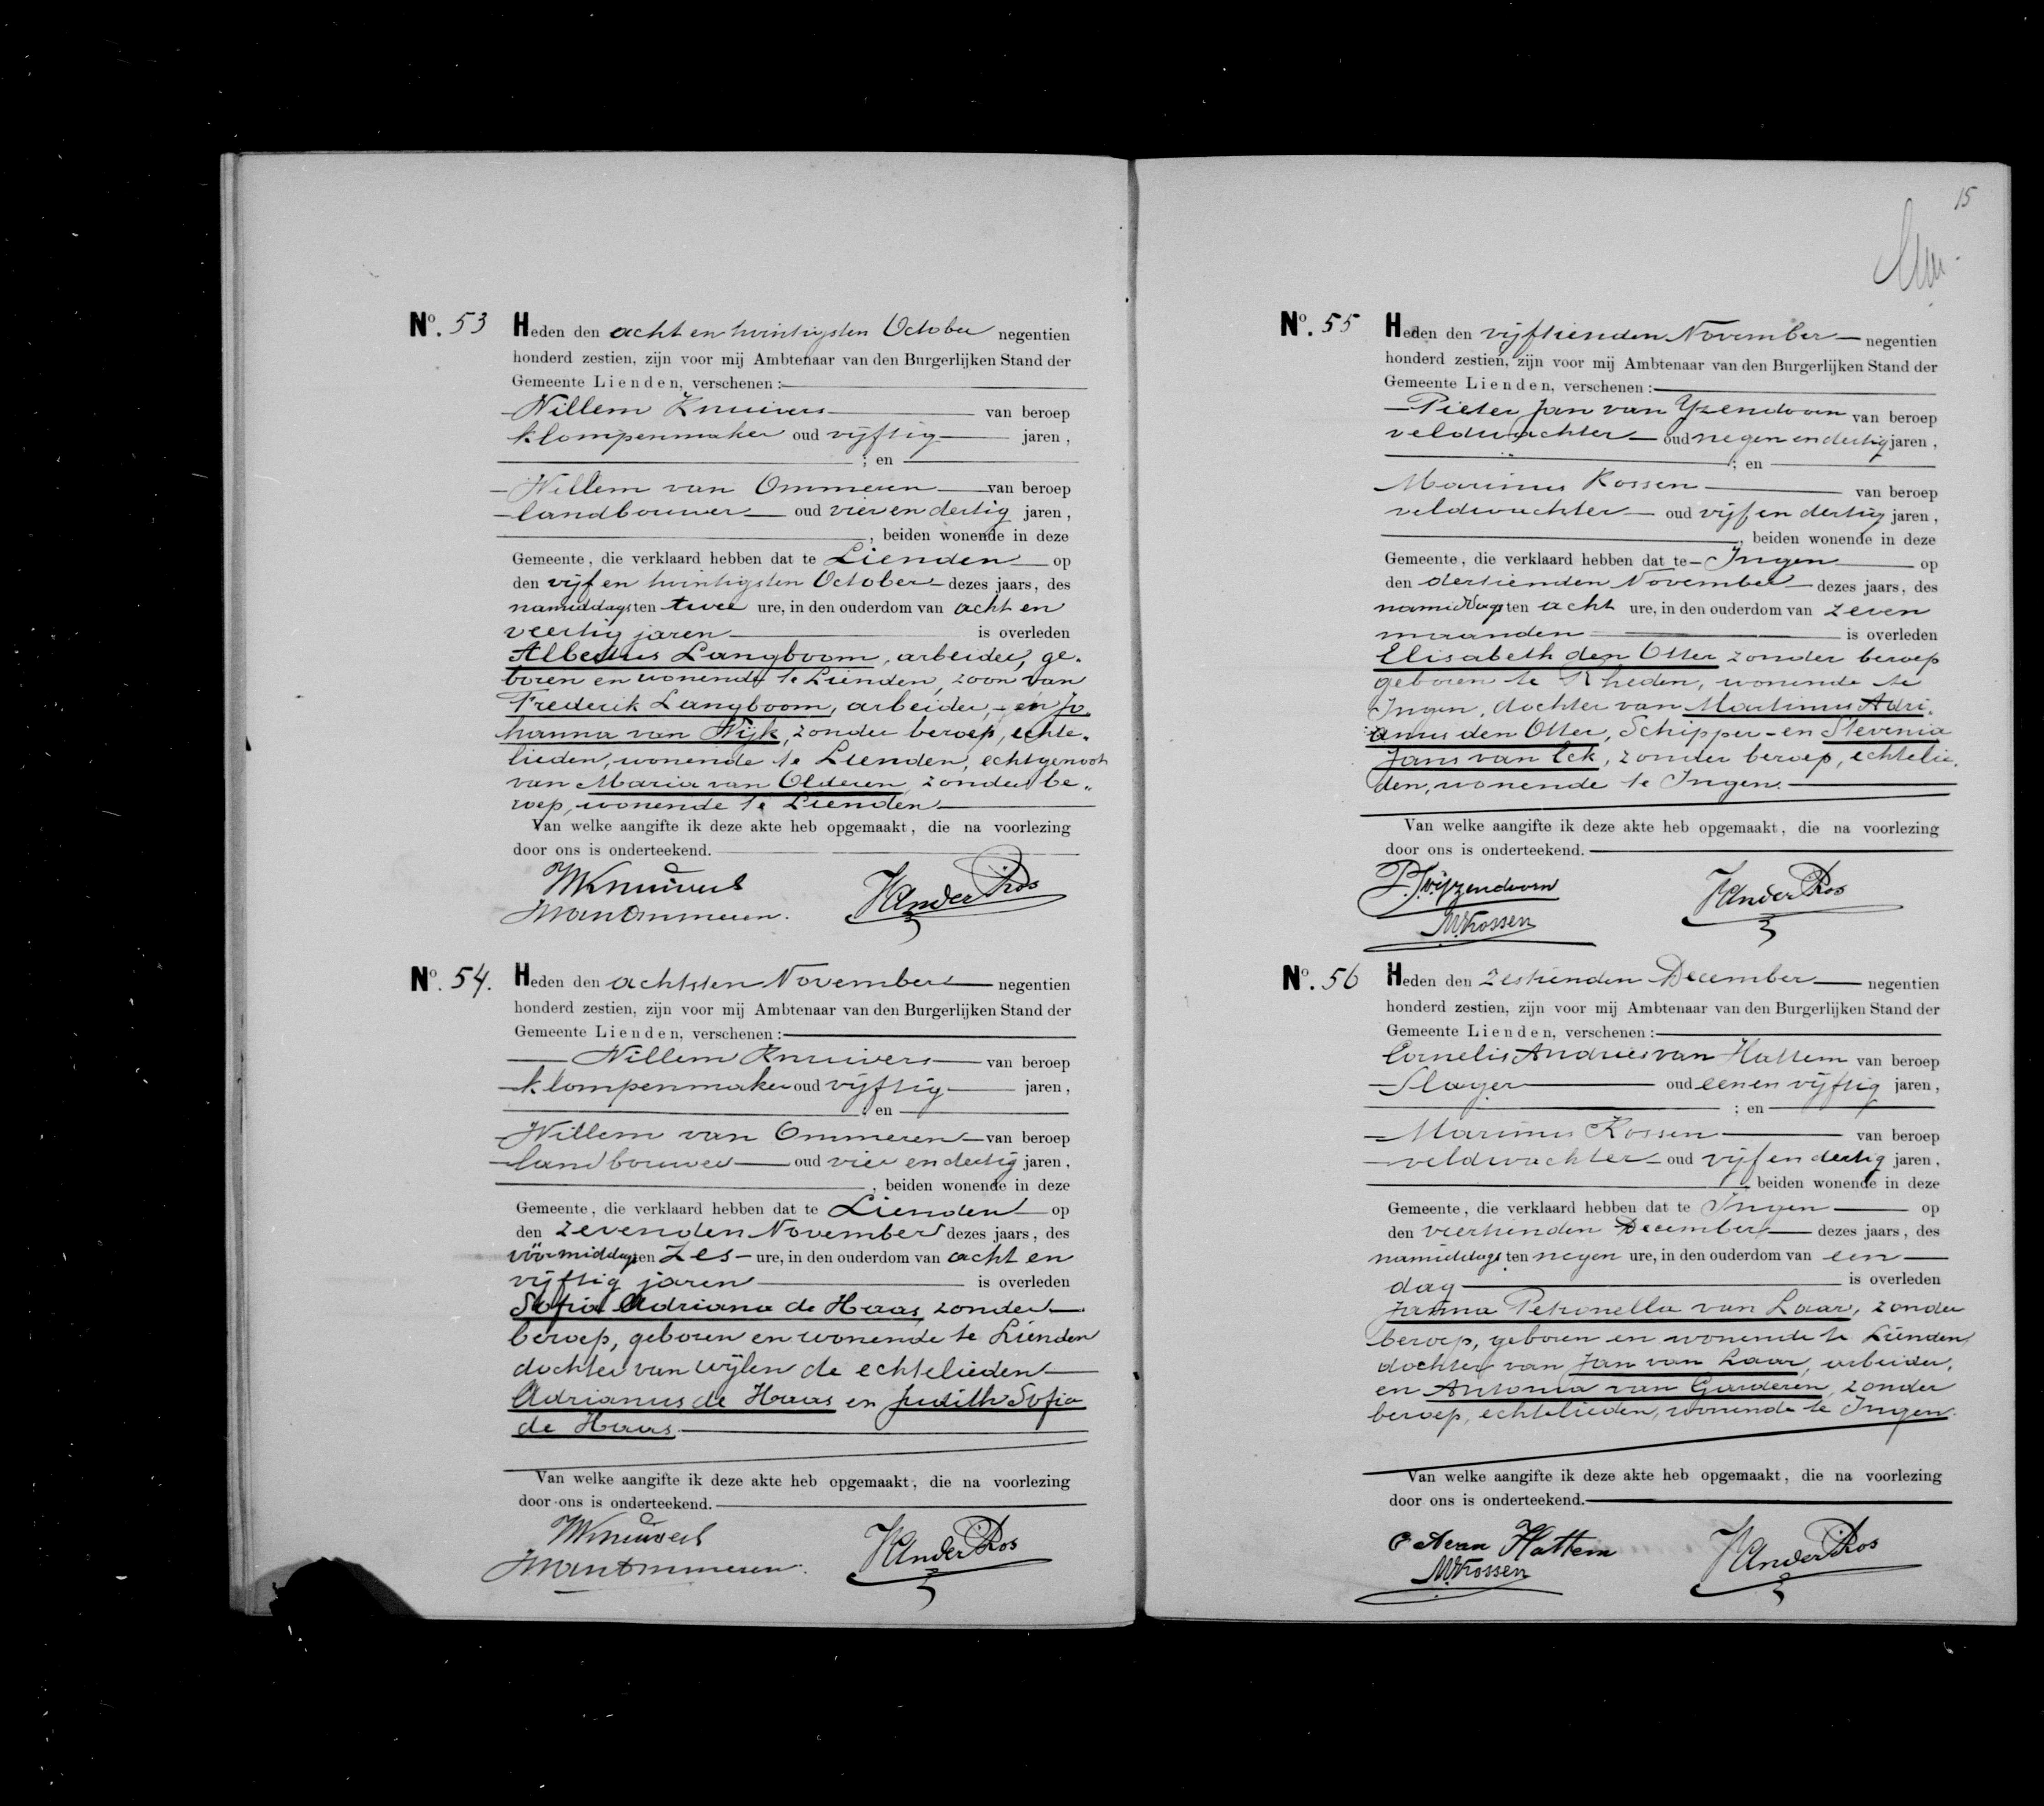 No. 53 Heden den acht en twintigsten October negentien
honderd zestien, zijn voor mij Ambtenaar van den Burgerlijken Stand der
Gemeente Lienden, verschenen:
Willem Knuivers van beroep
klompenmaker oud vijftig jaren,
; en
Willem van Ommeren van beroep
landbouwer oud vier en dertig jaren,
, beiden wonende in deze
Gemeente, die verklaard hebben dat te Lienden op
den vijf en twintigsten October dezes jaars, des
namiddags ten twee ure, in den ouderdom van acht en
veertig jaren is overleden
Albertus Langboom, arbeider, ge-
boren en wonende te Lienden, zoon van
Frederik Langboom, arbeider, en Jo-
hanna van Wijk, zonder beroep, echte-
lieden, wonende te Lienden, echtgenoot
van Maria van Olderen, zonder be-
roep, wonende te Lienden
Van welke aangifte ik deze akte heb opgemaakt, die na voorlezing
door ons is onderteekend.
WKnuivers
WvanOmmeren. VanderRos
No. 54. Heden den achtsten November negentien
honderd zestien, zijn voor mij Ambtenaar van den Burgerlijken Stand der
Gemeente Lienden, verschenen:
Willem Knuivers van beroep
klompenmaker oud vijftig jaren,
; en
Willem van Ommeren van beroep
landbouwer oud vier en dertig jaren,
, beiden wonende in deze
Gemeente, die verklaard hebben dat te Lienden op
den zevenden November dezes jaars, des
vóórmiddags ten zes ure, in den ouderdom van acht en
vijftig jaren is overleden
Sofia Adriana de Haas, zonder
beroep, geboren en wonende te Lienden
dochter van wijlen de echtelieden
Adrianus de Haas en Judith Sofia
de Haas.
Van welke aangifte ik deze akte heb opgemaakt, die na voorlezing
door ons is onderteekend.
WKnuivers
WvanOmmeren. VanderRos
15
No. 55 Heden den vijftienden November negentien
honderd zestien, zijn voor mij Ambtenaar van den Burgerlijken Stand der
Gemeente Lienden, verschenen:
Pieter Jan van Yzendoorn van beroep
veldwachter oud negen en dertig jaren,
; en
Marinus Rossen van beroep
veldwachter oud vijf en dertig jaren,
, beiden wonende in deze
Gemeente, die verklaard hebben dat te Ingen op
den dertienden November dezes jaars, des
namiddags ten acht ure, in den ouderdom van zeven
maanden is overleden
Elisabeth den Otter zonder beroep
geboren te Rheden, wonende te
Ingen, dochter van Martinus Adri-
anus den Otter, Schipper en Stevenia
Jans van Eck, zonder beroep, echtelie-
den, wonende te Ingen.
Van welke aangifte ik deze akte heb opgemaakt, die na voorlezing
door ons is onderteekend.
P.J.v.Yzendoorn VanderRos
M.Rossen
No. 56 Heden den zestienden December negentien
honderd zestien, zijn voor mij Ambtenaar van den Burgerlijken Stand der
Gemeente Lienden, verschenen:
Cornelis Andries van Hattem van beroep
Slager oud een en vijftig jaren,
; en
Marinus Rossen van beroep
veldwachter oud vijf en dertig jaren,
, beiden wonende in deze
Gemeente, die verklaard hebben dat te Ingen op
den veertienden December dezes jaars, des
namiddags ten negen ure, in den ouderdom van een
dag is overleden
Janna Petronella van Laar, zonder
beroep, geboren en wonende te Lienden
dochter van Jan van Laar, arbeider,
en Antonia van Garderen, zonder
beroep, echtelieden, wonende te Ingen.
Van welke aangifte ik deze akte heb opgemaakt, die na voorlezing
door ons is onderteekend.
C A van Hattem VanderRos
M.Rossen